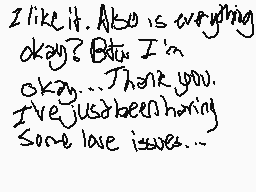 I like it. Also is everything
okay? Btw I'm
okay... Thank you.
I've just been having
some love issues...